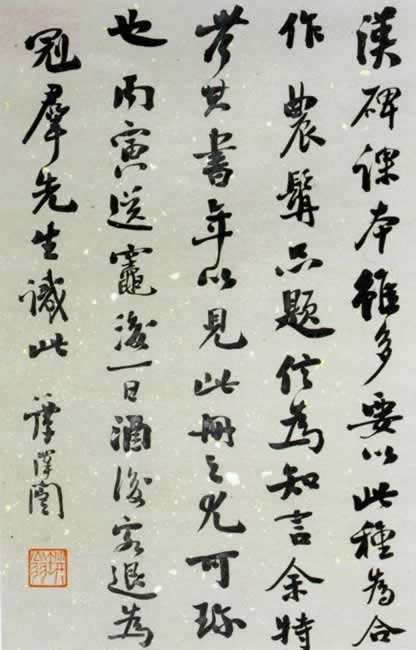 漢碑課本雖多要以此種為合
作農髯品題信為知言余特
考其書年以見此冊之尤可珍
也丙寅送竈後一日酒後客退為
冠羣先生識此
譚澤闓